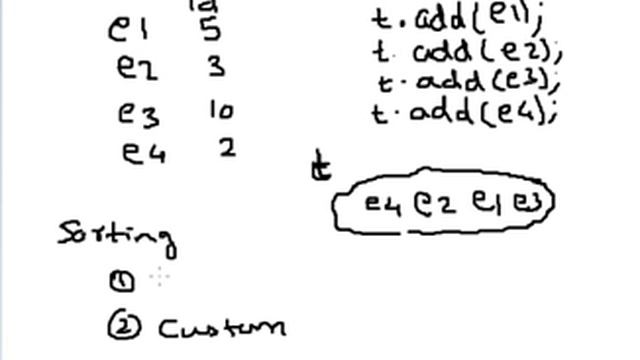 id
e1 5 t.add(e1);
e2 3 t.add(e2);
e3 10 t.add(e3);
e4 2 t.add(e4);
t
e4 e2 e1 e3
Sorting
①
② Custom